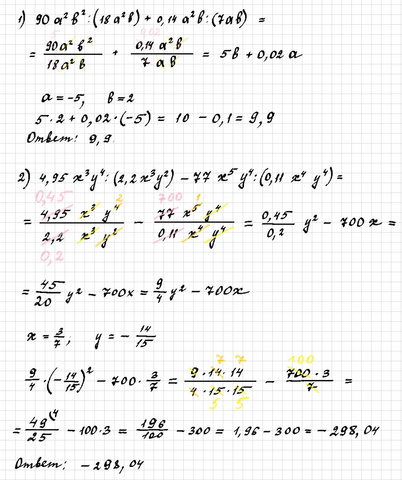 1) 90 a²b² : (18 a²b) + 0,14 a²b : (7ab) =
0,02
= 90a²b²/18a²b + 0,14 a²b/7ab = 5b + 0,02 a
a = -5, b = 2
5 · 2 + 0,02 · (-5) = 10 - 0,1 = 9,9
Ответ: 9,9.
2) 4,95 x³y⁴ : (2,2 x³y²) - 77 x⁵y⁴ : (0,11 x⁴ y⁴) =
0,45 2 700 1
= 4,95 x³ y⁴/2,2 x³ y² - 77 x⁵ y⁴/0,11 x⁴ y⁴ = 0,45/0,2 y² - 700 x =
0,2
= 45/20 y² - 700x = 9/4 y² - 700x
x = 3/7, y = - 14/15
7 7 100
9/4 · (-14/15)² - 700 · 3/7 = 9·14·14/4·15·15 - 700·3/7 =
5 5
= 49/25 (4 - 100·3 = 196/100 - 300 = 1,96 - 300 = - 298,04
Ответ: - 298,04